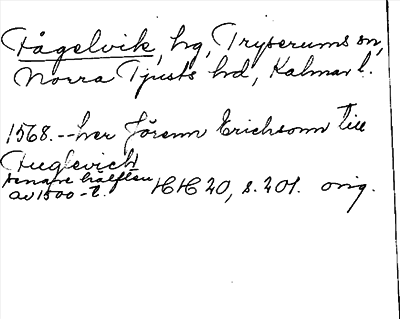 Fågelvik, hg, Tryserums sn,
Norra Tjusts hd, Kalmar l.
1568.--her Jörenn Erichsonn till
Fuglevich
senare hälften
av 1500-t. HH 20, s. 201. orig.